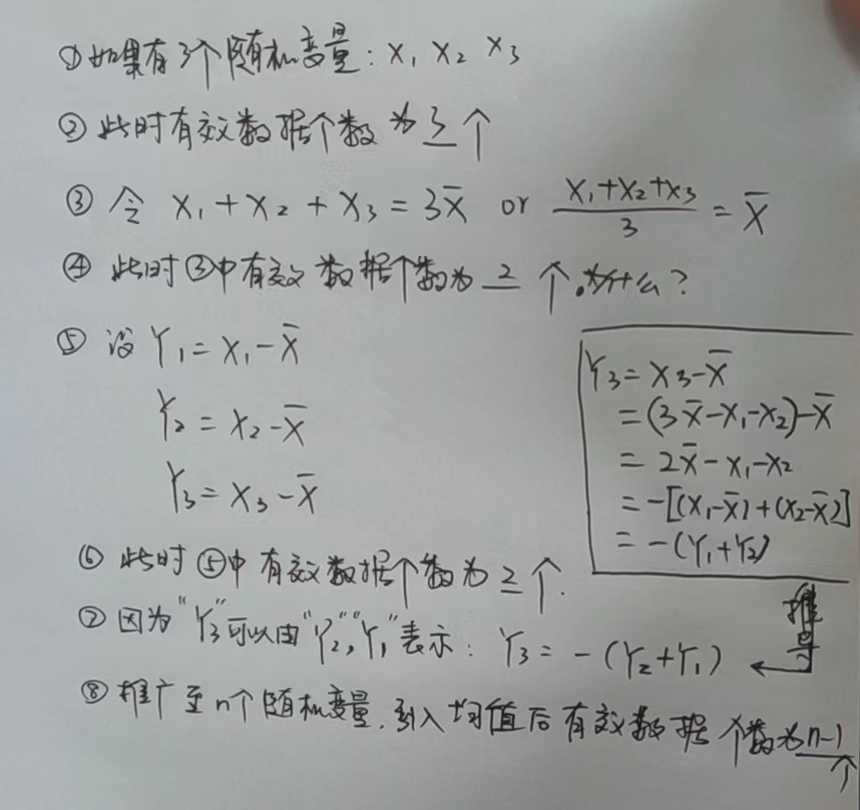 ①如果有3个随机变量: X₁ X₂ X₃
②此时有效数据个数为 3 个
③ 令 X₁+X₂+X₃=3X̄ or (X₁+X₂+X₃)/3 = X̄
④ 此时③中有效数据个数为 2 个.为什么?
⑤ 设 Y₁=X₁-X̄
Y₂=X₂-X̄
Y₃=X₃-X̄
Y₃=X₃-X̄
=(3X̄-X₁-X₂)-X̄
=2X̄-X₁-X₂
=-[(X₁-X̄)+(X₂-X̄)]
=-(Y₁+Y₂)
推导
⑥ 此时⑤中有效数据个数为 2 个.
⑦ 因为"Y₃"可以由"Y₂","Y₁"表示: Y₃=-(Y₂+Y₁)
⑧ 推广至n个随机变量,引入均值后有效数据个数为n-1个